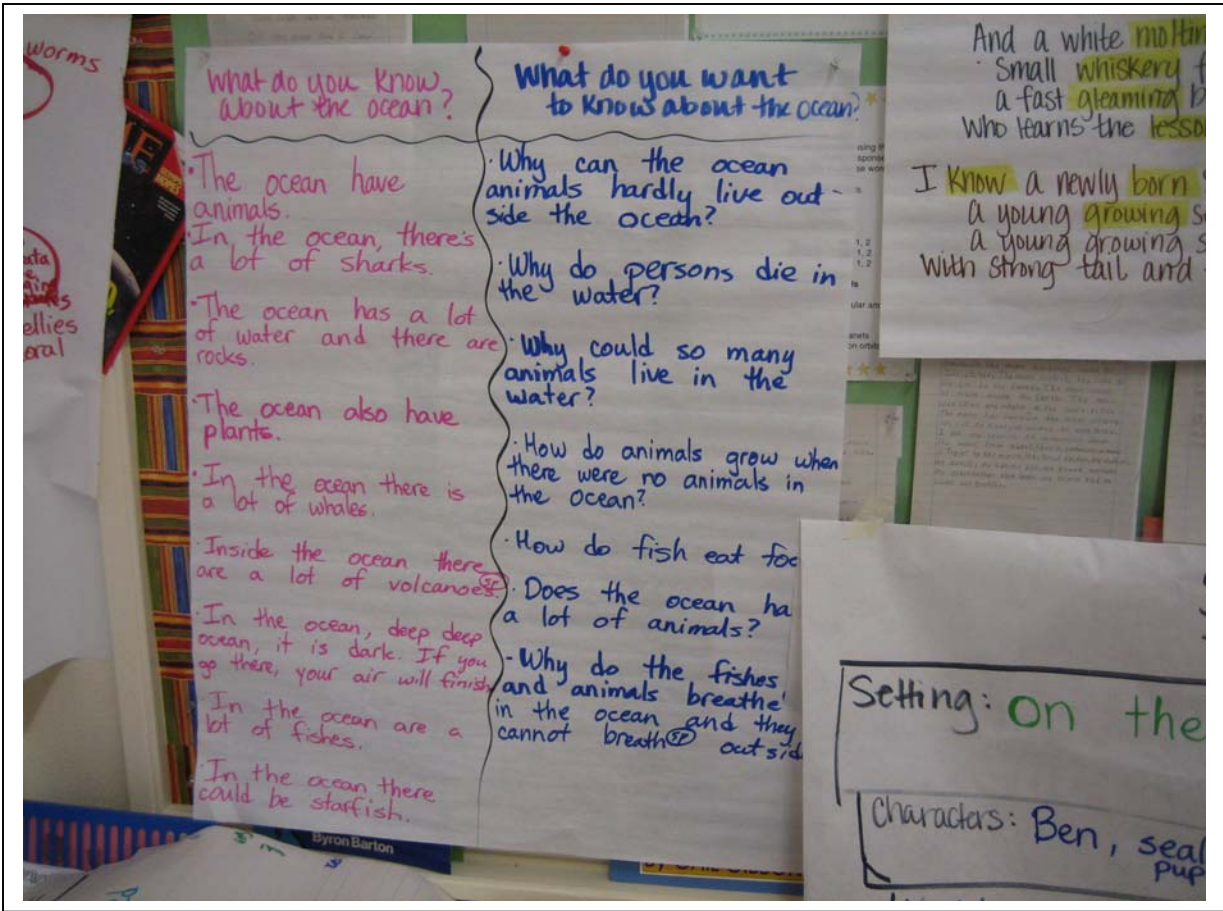 worms
ellies
oral
What do you know
about the ocean?
The ocean have
animals.
In the ocean, there's
a lot of sharks.
The ocean has a lot
of water and there are
rocks.
The ocean also have
plants.
In the ocean there is
a lot of whales.
Inside the ocean there
are a lot of volcanoes.
sp
In the ocean, deep deep
ocean, it is dark. If you
go there, your air will finish
In the ocean are a
lot of fishes.
In the ocean there
could be starfish.
What do you want
to know about the ocean?
Why can the ocean
animals hardly live out-
side the ocean?
Why do persons die in
the water?
Why could so many
animals live in the
water?
How do animals grow when
there were no animals in
the ocean?
How do fish eat foo
Does the ocean ha
a lot of animals?
Why do the fishes
and animals breathe
in the ocean and they
cannot breath sp outside
And a white moltin
Small whiskery f
a fast gleaming b
who learns the lesso
I know a newly born
a young growing s
a young growing s
with strong tail and
Setting: on the
Characters: Ben, seal
pup
Byron Barton